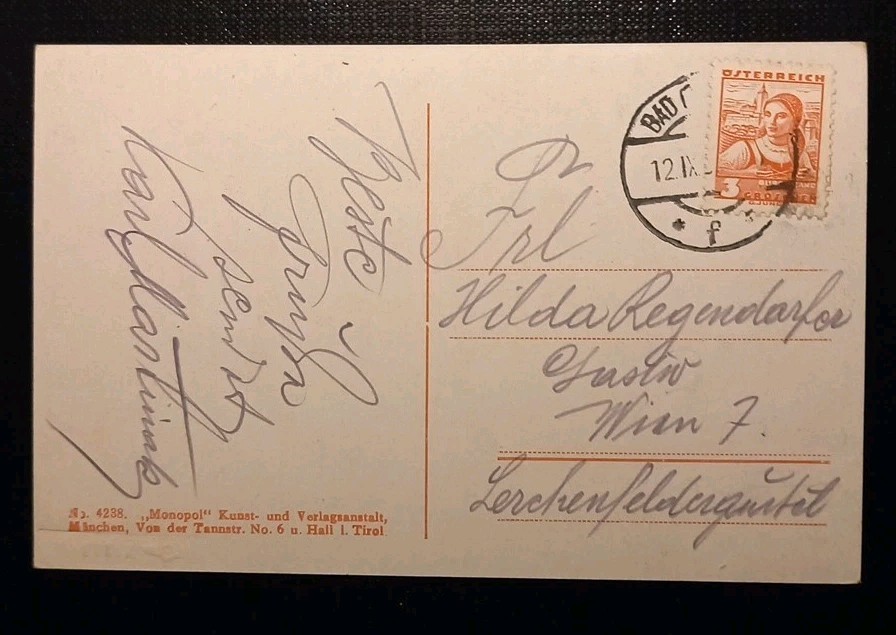 Beste
Grüße
sendet
Karl
Frl
Hilda Regendorfer
Wien 7.
Lerchenfeldergürtel
ÖSTERREICH
3
GROSCHEN
BAD
12.IX
* f
No. 4238. „Monopol“ Kunst- und Verlagsanstalt,
München, Von der Tannstr. No. 6 u. Hall i. Tirol